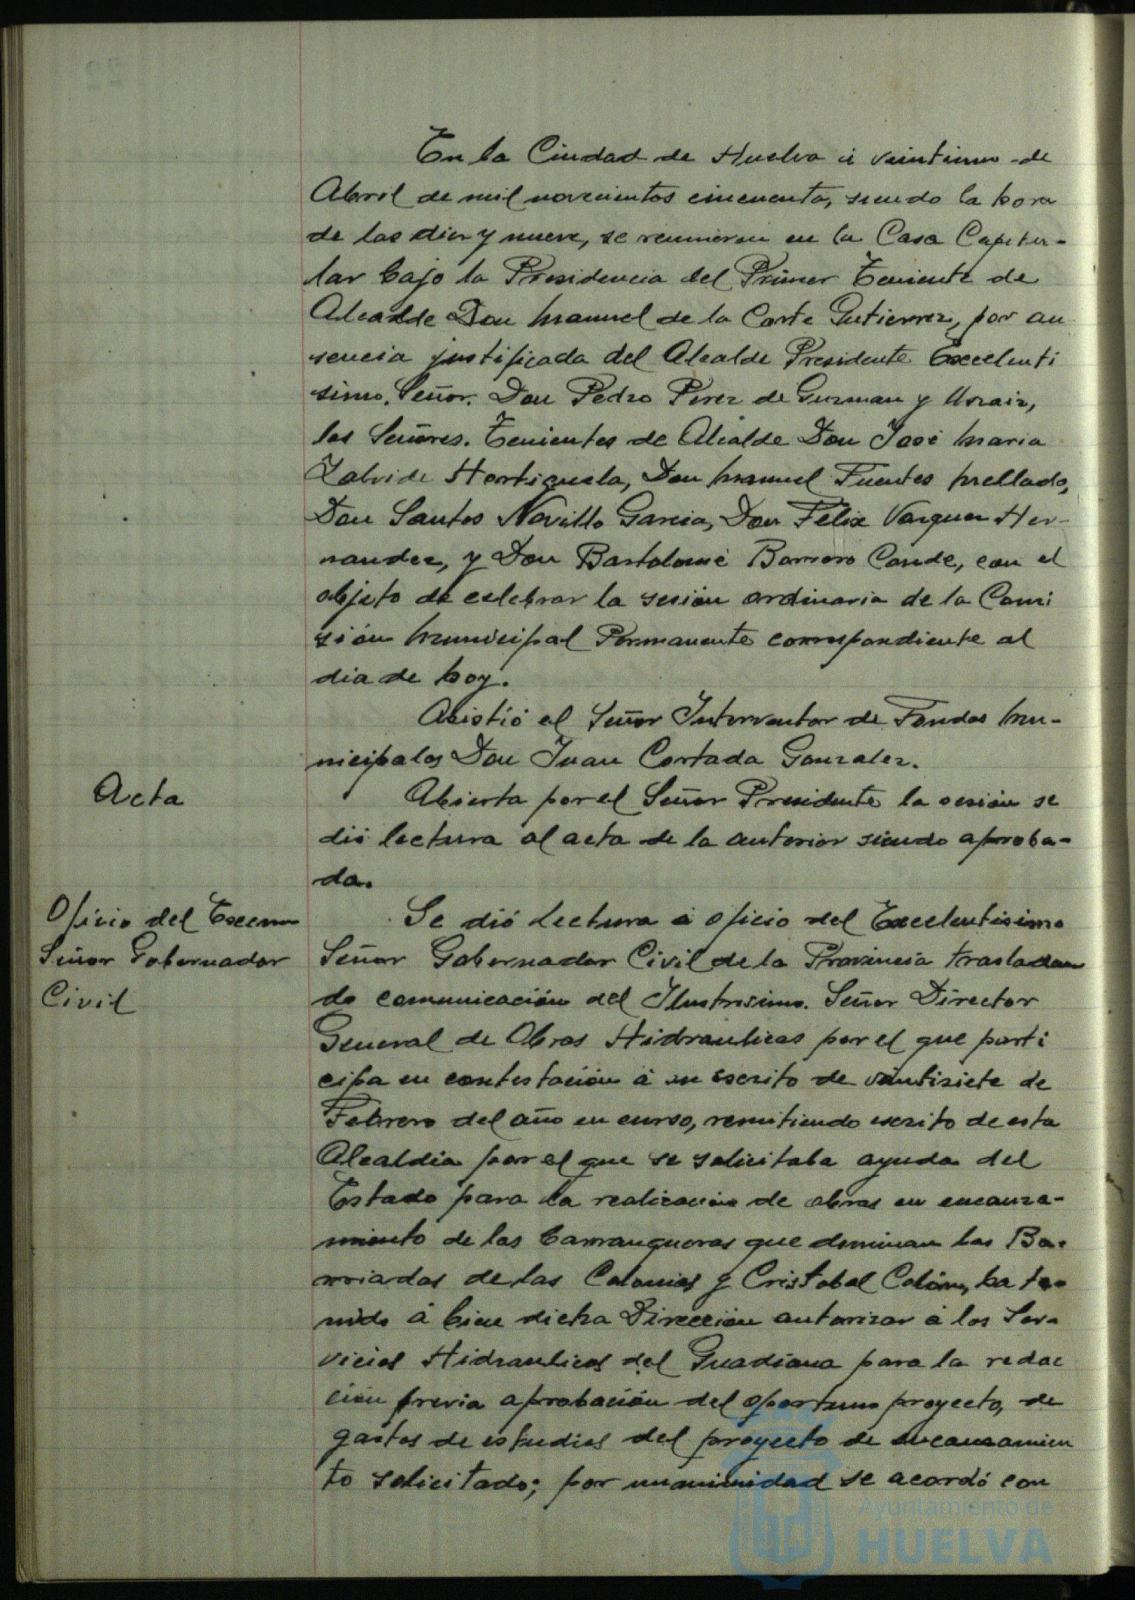 En la Ciudad de Huelva á veintiuno de
Abril de mil novecientos cincuenta, siendo la hora
de las diez y nueve, se reunieron en la Casa Capitu-
lar bajo la Presidencia del Primer Teniente de
Alcalde Don Manuel de la Corte Gutierrez, por au
sencia justificada del Alcalde Presidente Excelenti
simo. Señor. Don Pedro Perez de Guzman y Urzaiz,
los Señores. Tenientes de Alcalde Don José Maria
Zalvide Hortiguela, Don Manuel Fuentes Mellado,
Don Santos Novillo Garcia, Don Félix Vazquez Her-
nandez, y Don Bartolomé Barroso Conde, con el
objeto de celebrar la sesión ordinaria de la Comi
sión Municipal Permanente correspondiente al
dia de hoy.
Asistió el Señor Interventor de Fondos Mu-
nicipales Don Juan Cortada Gonzalez.
Acta
Abierta por el Señor Presidente la sesión se
dió lectura al acta de la anterior siendo aproba-
da.
Oficio del Excmo
Señor Gobernador
Civil
Se dió lectura á oficio del Excelentisimo
Señor Gobernador Civil de la Provincia trasladan
do comunicación del Ilustrisimo. Señor Director
General de Obras Hidraulicas por el que parti
cipa en contestación á su escrito de veintisiete de
Febrero del año en curso, remitiendo escrito de esta
Alcaldia por el que se solicitaba ayuda del
Estado para la realización de obras en encauza-
miento de las barranqueras que dominan las Ba-
rriadas de las Colonias y Cristobal Colón, ha te-
nido á bien dicha Dirección autorizar á los Ser-
vicios Hidraulicos del Guadiana para la redac
ción previa aprobación del oportuno proyecto, de
gastos de estudios del proyecto de encauzamien
to solicitado; por unanimidad se acordó con
Ayuntamiento de
HUELVA